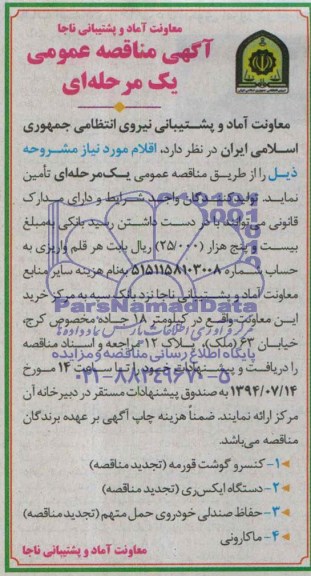 معاونت آماد و پشتیبانی ناجا
آگهی مناقصه عمومی
یک مرحله‌ای
معاونت آماد و پشتیبانی نیروی انتظامی جمهوری
اسلامی ایران در نظر دارد، اقلام مورد نیاز مشروحه
ذیل را از طریق مناقصه عمومی یک‌مرحله‌ای تأمین
نماید. تولیدکنندگان واجد شرایط و دارای مدارک
قانونی می‌توانند با در دست داشتن رسید بانکی به‌مبلغ
بیست و پنج هزار (۲۵/۰۰۰) ریال بابت هر قلم واریزی به
حساب شماره ۵۱۵۱۱۵۸۱۰۳۰۰۸ به‌نام هزینه سایر منابع
معاونت آماد و پشتیبانی ناجا نزد بانک سپه به مرکز خرید
این معاونت واقع در کیلومتر ۱۸ جاده مخصوص کرج،
خیابان ۶۳ (ملک)، پلاک ۱۲ مراجعه و اسناد مناقصه
را دریافت و پیشنهادات خود را تا ساعت ۱۴ مورخ
۱۳۹۴/۰۷/۱۴ به صندوق پیشنهادات مستقر در دبیرخانه آن
مرکز ارائه نمایند. ضمناً هزینه چاپ آگهی بر عهده برندگان
مناقصه می‌باشد.
۱- کنسرو گوشت قورمه (تجدید مناقصه)
۲- دستگاه ایکس‌ری (تجدید مناقصه)
۳- حفاظ صندلی خودروی حمل متهم (تجدید مناقصه)
۴- ماکارونی
معاونت آماد و پشتیبانی ناجا
ParsNamadData
پایگاه اطلاع رسانی مناقصه و مزایده
۰۲۱-۸۸۳۴۹۶۷۰-۵